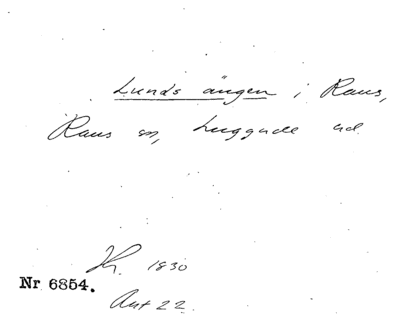 Lunds ängen i Raus,
Raus sn, Luggude hd.
1830
Nr 6854.
Akt 22.